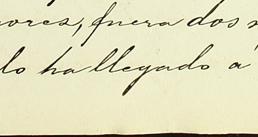 ores, fuera dos
lo ha llegado á